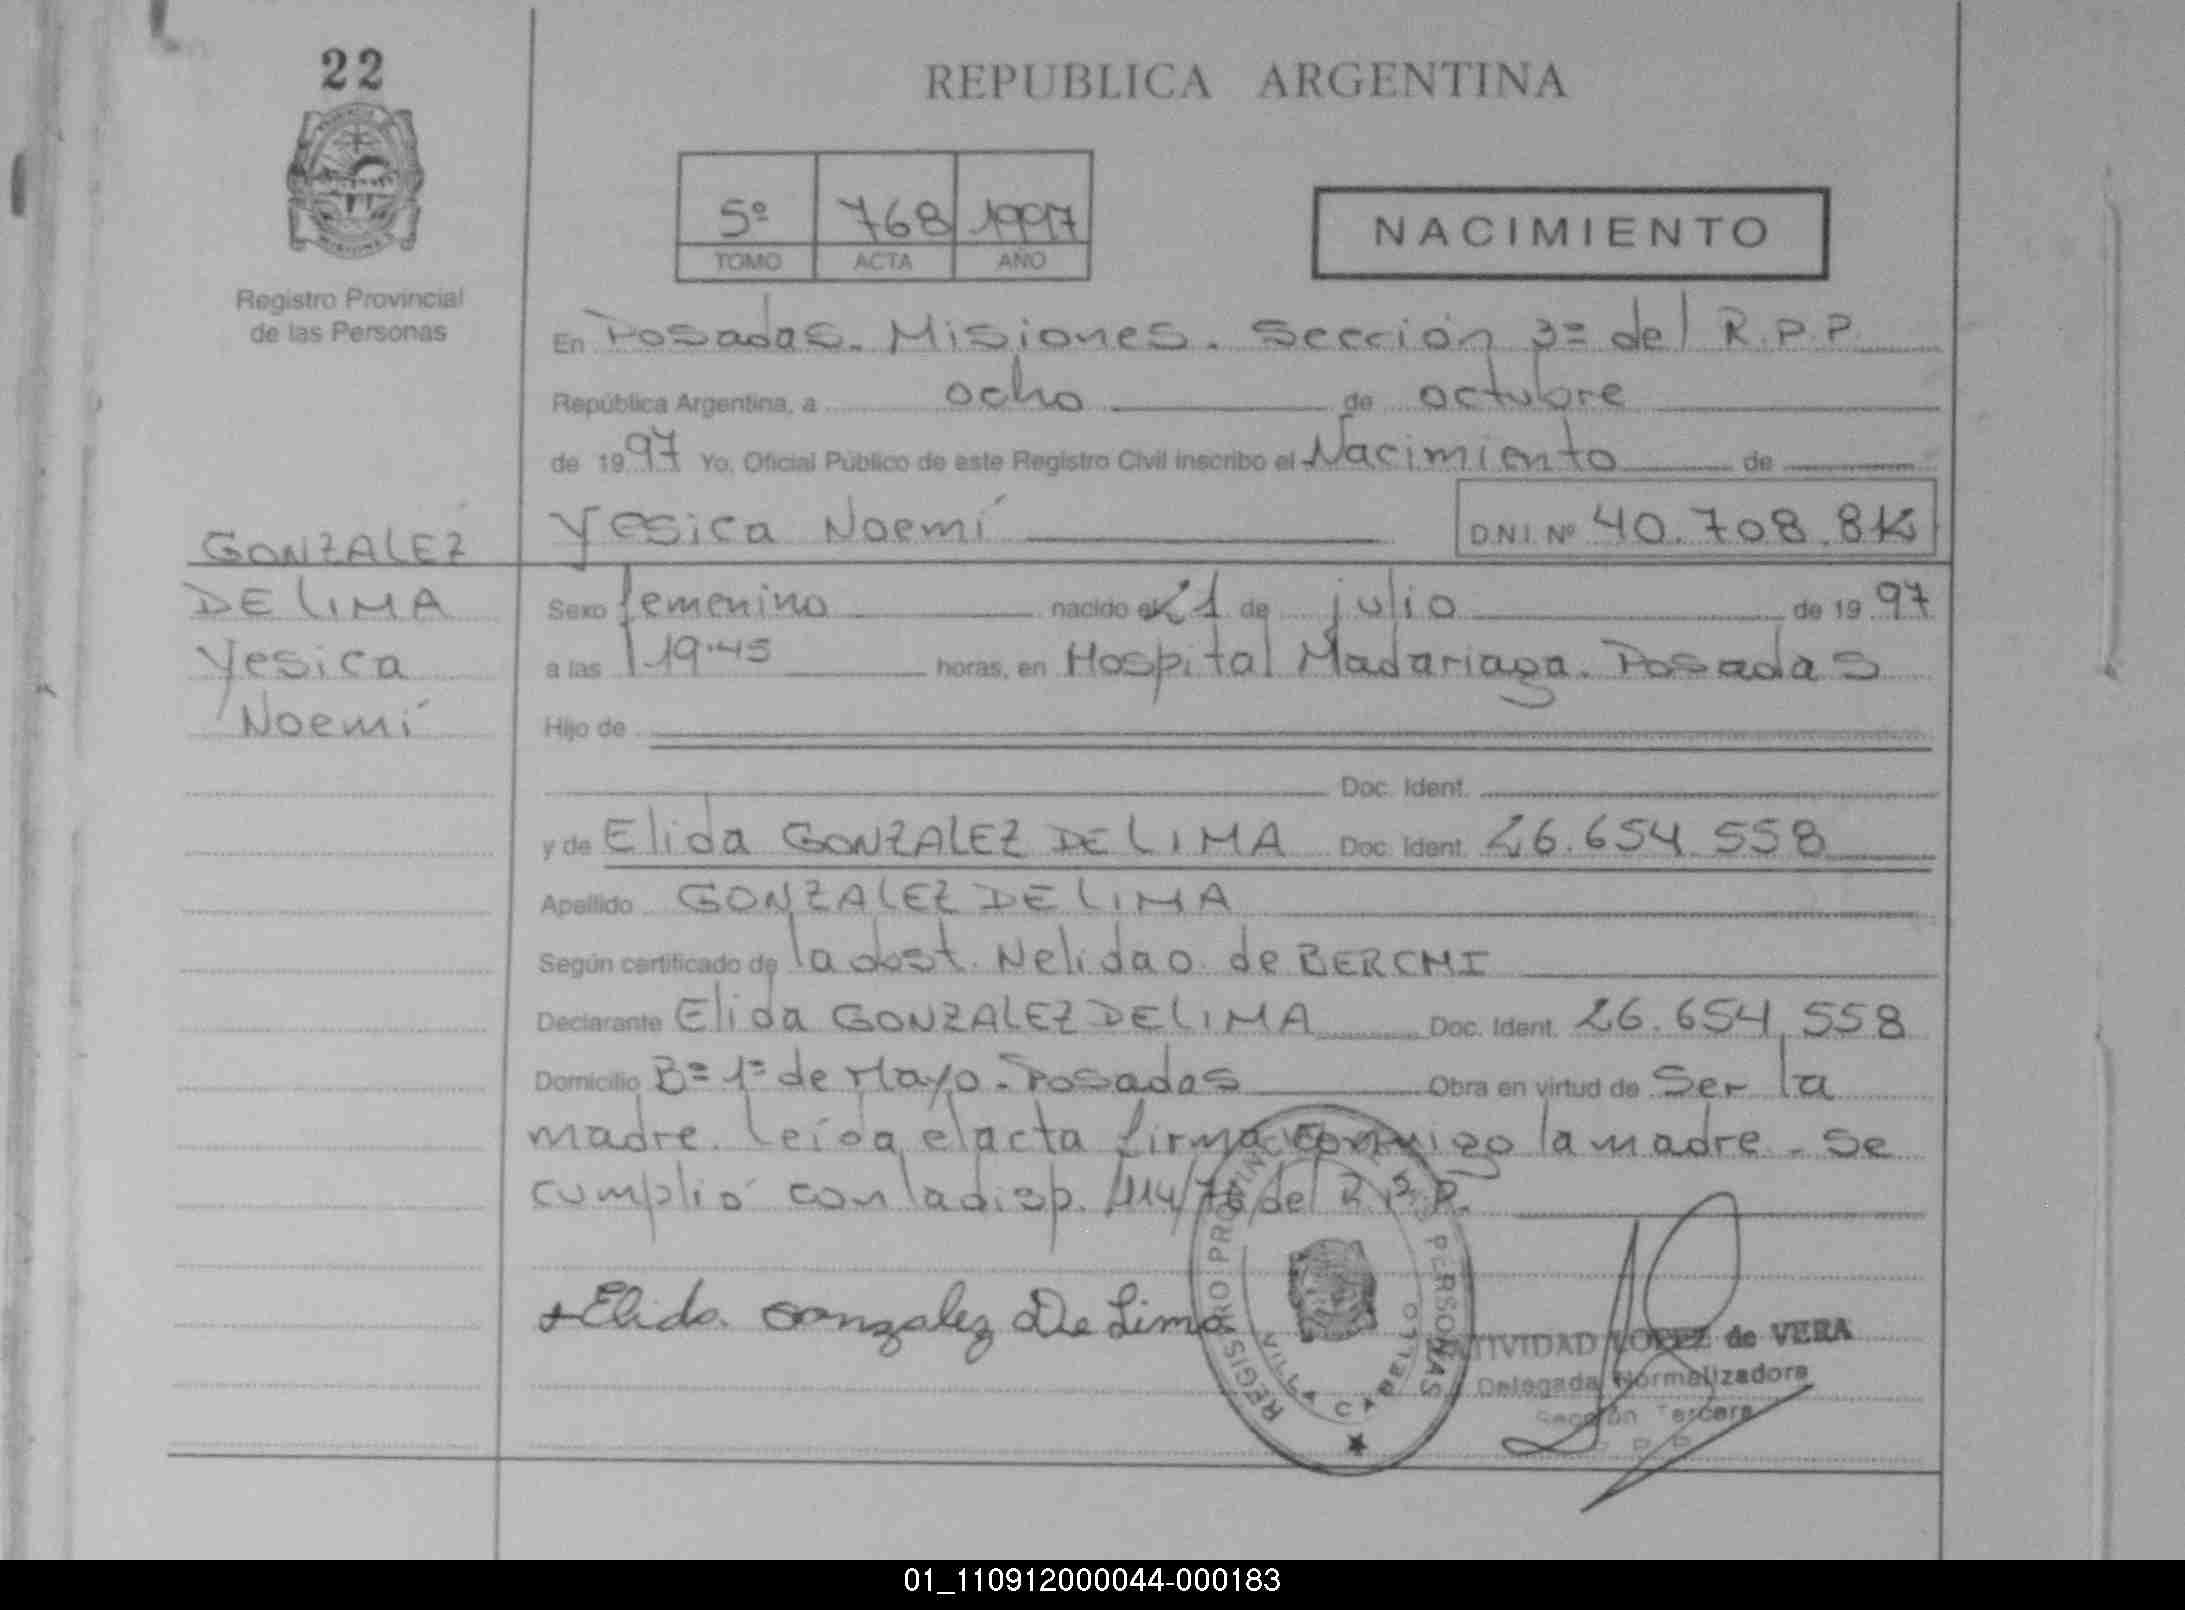 22
REPUBLICA ARGENTINA
5º 768 1997
TOMO ACTA AÑO
NACIMIENTO
Registro Provincial
de las Personas
En Posadas. Misiones. Sección 3ª del R.P.P.
República Argentina, a ocho de octubre
de 1997 Yo, Oficial Público de este Registro Civil inscribo el Nacimiento de
Yesica Noemí D.N.I. Nº 40.708.8
GONZALEZ
DE LIMA
Yesica
Noemí
Sexo femenino nacido el 21 de julio de 1997
a las 19.45 horas, en Hospital Madariaga. Posadas
Hijo de
Doc. Ident.
y de Elida GONZALEZ DE LIMA Doc. Ident. 26.654.558
Apellido GONZALEZ DE LIMA
Según certificado de la obst. Nelida O. de
Declarante Elida GONZALEZ DE LIMA Doc. Ident. 26.654.558
Domicilio Bº 1º de Mayo. Posadas Obra en virtud de Ser la
madre. Leída el acta firma conmigo la madre. Se
cumplió con la disp. 114/76 del R.P.P.
Elida Gonzalez De Lima
REGISTRO PROVINCIAL DE LAS PERSONAS
VILLA CABELLO
NATIVIDAD LOPEZ de VERA
Delegada Normalizadora
Sección Tercera
R. P. P.
01_110912000044-000183